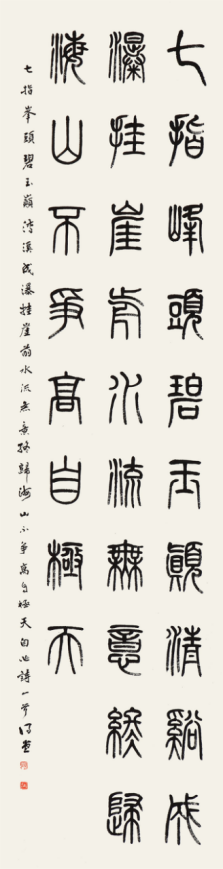 七指峰頭碧玉顛清谿成
瀑挂崖前水流無意終歸
海山不爭高自極天
七指峯頭碧玉巔清溪成瀑挂崖前水流無意終歸海山不爭高自極天自作詩一首